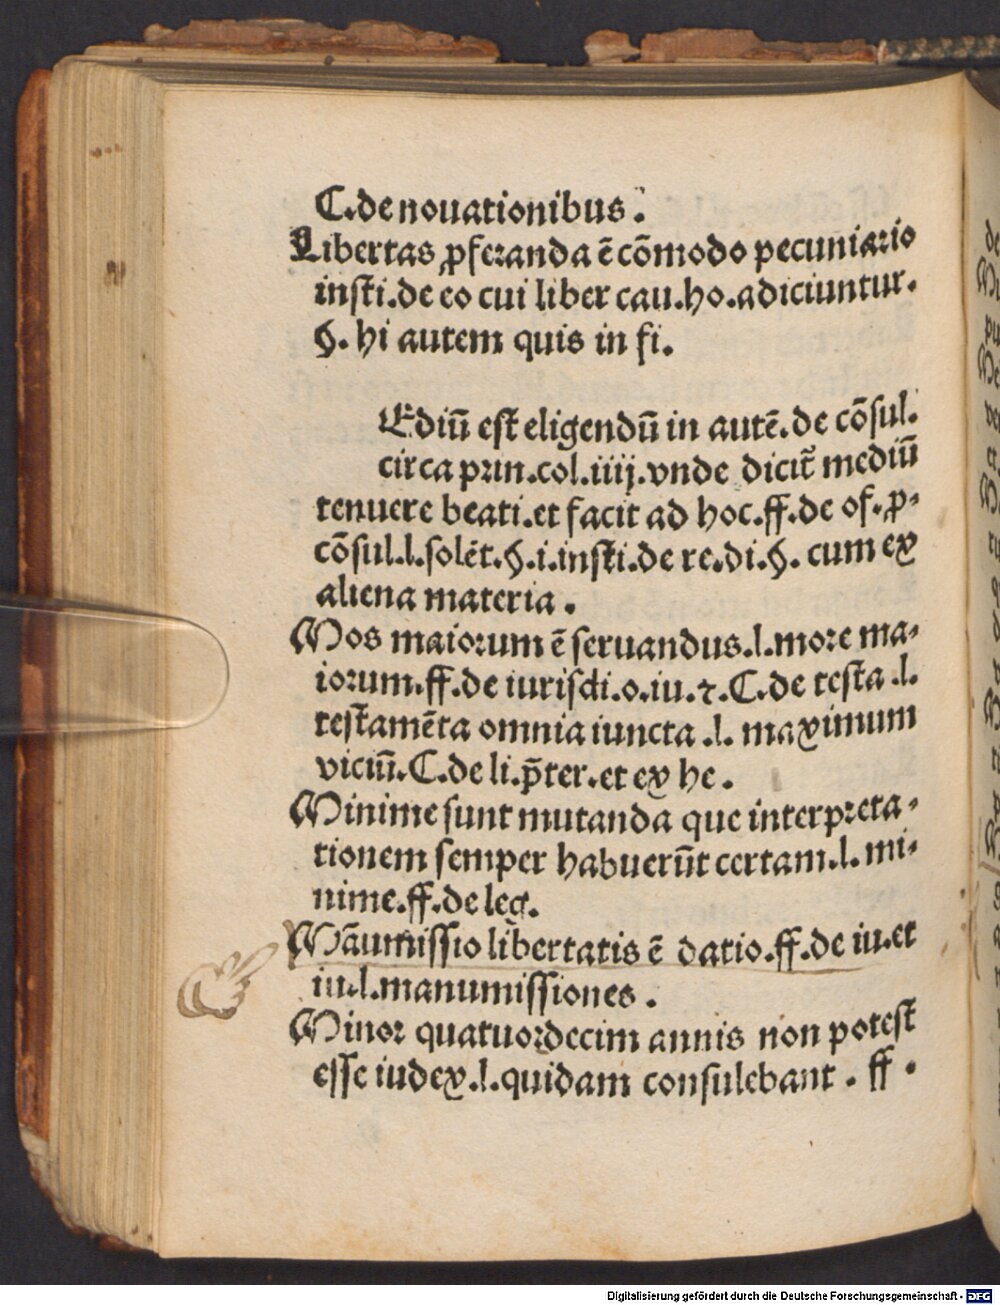 C.de nouationibus.
Libertas ꝓferanda ē cōmodo pecuniario
insti.de eo cui liber cau.ho.adiciuntur.
§. hi autem quis in fi.
Ediū est eligendū in autē.de cōsul.
circa prin.col.iiij.vnde dicit̄ mediū
tenuere beati.et facit ad hoc.ff.de of.ꝓ-
cōsul.l.solēt.§.i.insti.de re.di.§. cum ex
aliena materia.
Mos maiorum ē seruandus.l.more ma-
iorum.ff.de iurisdi.o.iu.⁊.C.de testa.l.
testamēta omnia iuncta.l. maximum
viciū.C.de li.p̄ter.et ex he.
Minime sunt mutanda que interpreta-
tionem semper habuerūt certam.l. mi-
nime.ff.de leg.
Māumissio libertatis ē datio.ff.de iu.et
iu.l.manumissiones.
Minor quatuordecim annis non potest
esse iudex.l.quidam consulebant. ff.
Digitalisierung gefördert durch die Deutsche Forschungsgemeinschaft - DFG